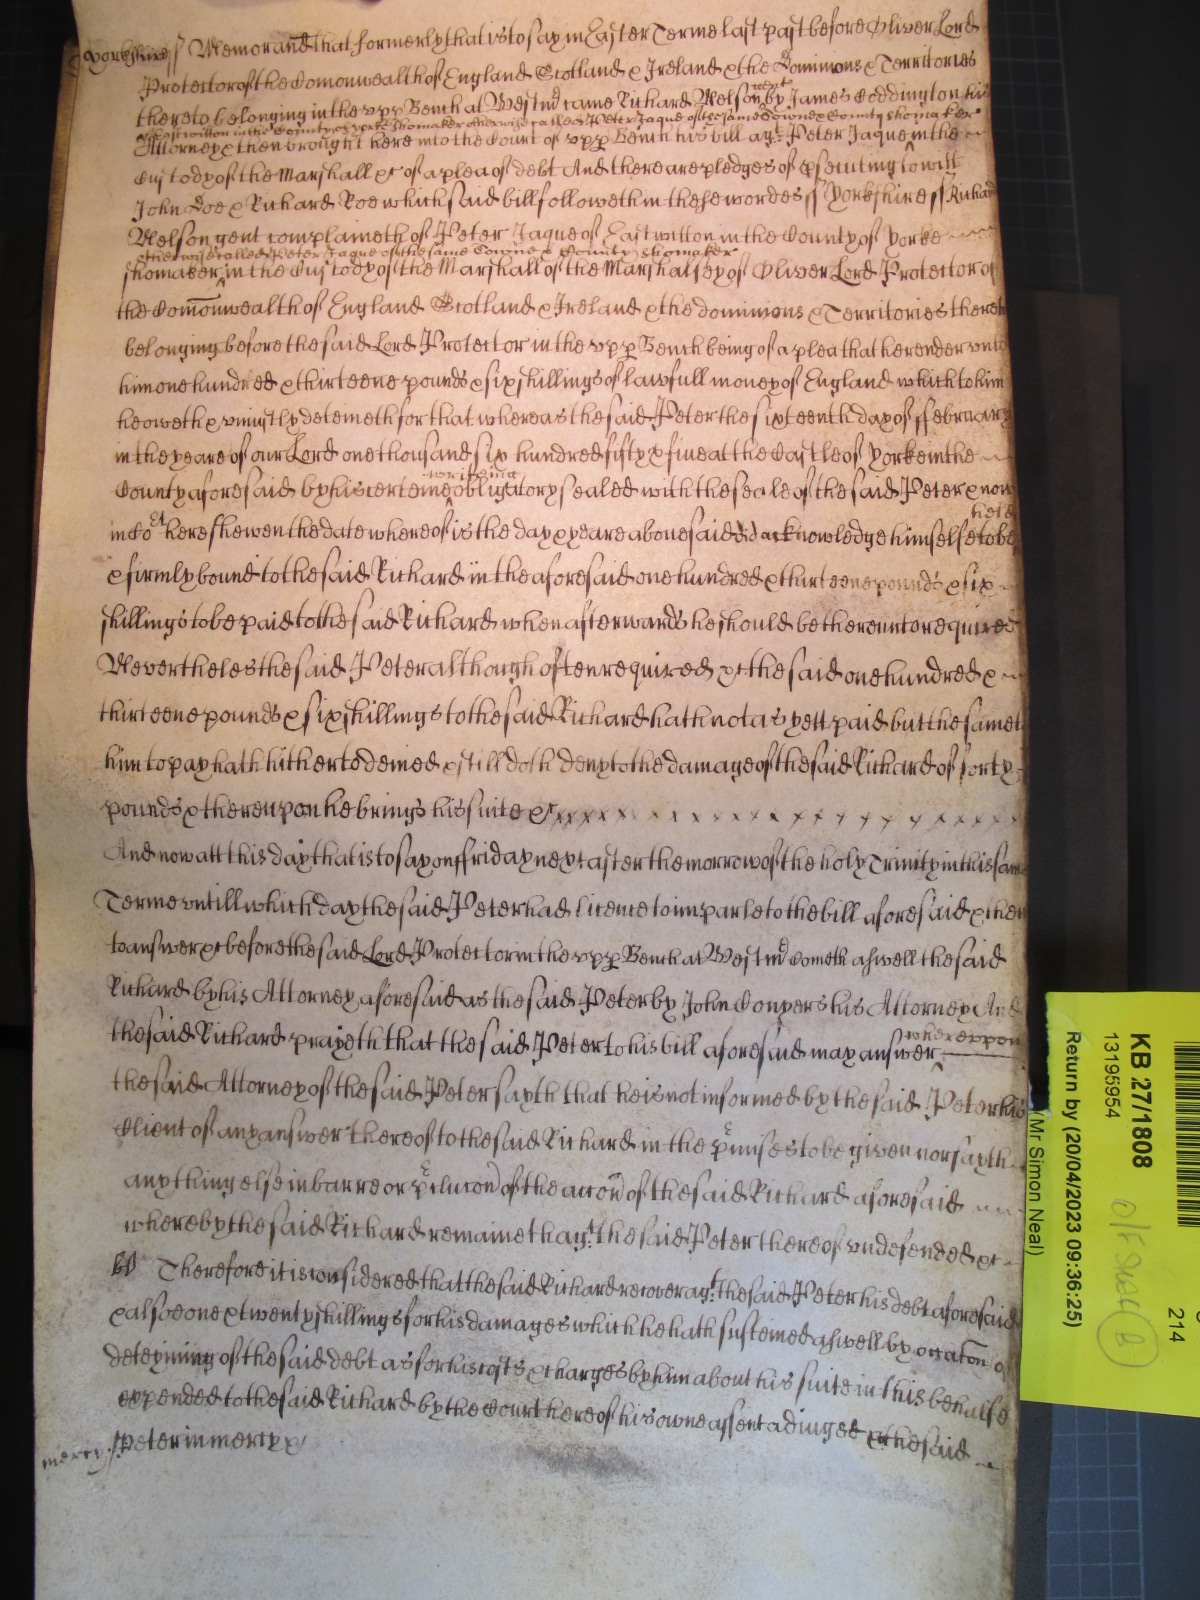 Yorkshire ss Memorand that formerly that is to say in Easter Terme last past before Oliver Lord
Protector of the Comonwealth of England Scotland & Ireland & the Dominions & Territories
thereto belonging in the upp Bench at Westmr came Richard Nelson gent by James Coddington his
of East witton in the County of yorke shomaker otherwise called Peter Jaque of the same Towne & County shomaker
Attorney & then brought here into the Court of upp Bench his bill agt Peter Jaque in the
Custody of the Marshall &c of a plea of debt And there are pledges of psecuting to witt
John Doe & Richard Roe which said bill followeth in these wordes ss Yorkshire ss Richard
Nelson gent complaineth of Peter Jaque of East witton in the County of Yorke
otherwise called Peter Jaque of the same Towne & County shomaker
shomaker in the Custody of the Marshall of the Marshalsey of Oliver Lord Protector of
the Comonwealth of England Scotland & Ireland & the dominions & Territories thereto
belonging before the said Lord Protector in the upp Bench being of a plea that he render unto
him one hundred & thirteene pounds & six shillings of lawfull money of England which to him
he oweth & uniustly deteineth for that whereas the said Peter the sixteenth day of ffebruary
in the yeare of our Lord one thousand six hundred fifty & five at the Castle of Yorke in the
writeing
County aforesaid by his certeine obligatory sealed with the seale of the said Peter & now
held
in Cot here shewen the date whereof is the day & yeare above said did acknowledge himselfe to be
& firmly bound to the said Richard in the aforesaid one hundred & thirteene pounds & six
shillings to be paid to the said Richard when afterwards he should be thereunto required
Nevertheles the said Peter although often required &c the said one hundred &
thirteene pounds & six shillings to the said Richard hath not as yett paid but the same to
him to pay hath hitherto denied & still doth deny to the damage of the said Richard of forty
pounds & thereupon he brings his suite &c
And now att this day that is to say on ffriday next after the morrow of the holy Trinity in this same
Terme untill which day the said Peter had licence to imparle to the bill aforesaid & then
to answer &c before the said Lord Protector in the upp Bench at Westmr cometh aswell the said
Richard by his Attorney aforesaid as the said Peter by John Conyers his Attorney And
whereupon
the said Richard prayeth that the said Peter to his bill aforesaid may answer
the said Attorney of the said Peter sayth that he is not informed by the said Peter his
Client of any answer thereof to the said Richard in the pmises to be given nor sayth
any thing else in barre or pclucon of the accon of the said Richard aforesaid
whereby the said Richard remaineth agt the said Peter thereof undefended &c
Therefore it is considered that the said Richard recover agt the said Peter his debt aforesaid
& alsoe one & twenty shillings for his damages which he hath susteined aswell by occaton of
deteyning of the said debt as for his costs & charges by him about his suite in this behalfe
expended to the said Richard by the Court here of his owne assent adiuged & the said
mercy Peter in mercy &c
KB 27/1808
13195954
Return by (20/04/2023 09:36:25)
(Mr Simon Neal)
214